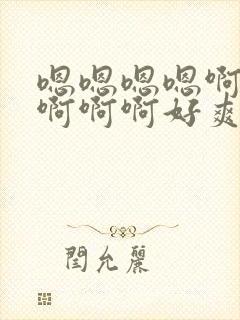 嗯嗯嗯嗯啊
啊啊啊好爽
閆允麗